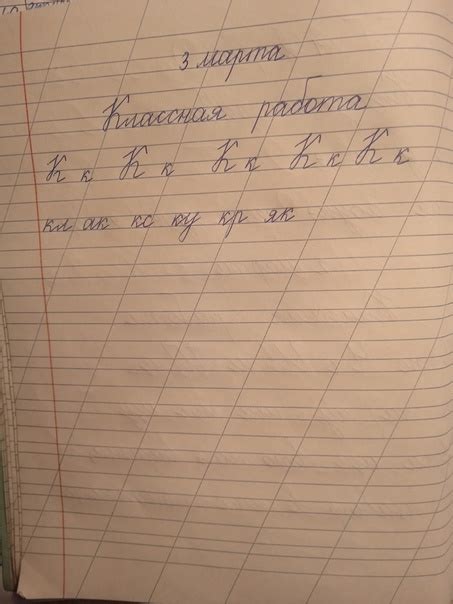 3 марта
Классная работа
К к К к К к К к К к
кл ак кс ку кр як